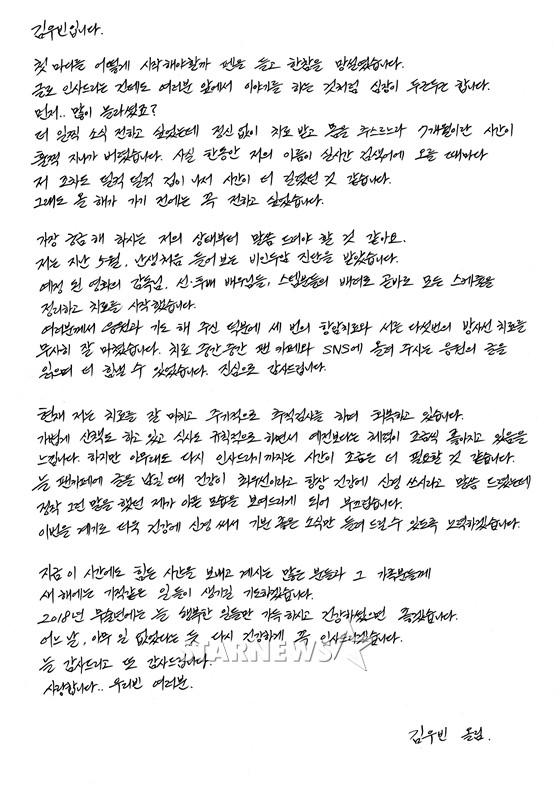 김우빈입니다.
첫 마디를 어떻게 시작해야할까 펜을 들고 한참을 망설였습니다.
글로 인사드리는 건데도 여러분 앞에서 이야기를 하는 것처럼 심장이 두근두근 합니다.
먼저.. 많이 놀라셨죠?
더 일찍 소식 전하고 싶었는데 정신 없이 치료 받고 몸을 추스르느라 7개월이란 시간이
훌쩍 지나가 버렸습니다. 사실 한동안 저의 이름이 실시간 검색어에 오를 때마다
저 조차도 덜컥 덜컥 겁이 나서 시간이 더 걸렸던 것 같습니다.
그래도 올 해가 가기 전에는 꼭 전하고 싶었습니다.
가장 궁금해 하시는 저의 상태부터 말씀 드려야 할 것 같아요.
저는 지난 5월, 난생처음 들어 보는 비인두암 진단을 받았습니다.
예정 된 영화의 감독님, 선·후배 배우님들, 스텝분들의 배려로 곧바로 모든 스케줄을
정리하고 치료를 시작했습니다.
여러분께서 응원과 기도 해 주신 덕분에 세 번의 항암치료와 서른 다섯번의 방사선 치료를
무사히 잘 마쳤습니다. 치료 중간중간 팬 카페와 SNS에 올려 주시는 응원의 글을
읽으며 더 힘낼 수 있었습니다. 진심으로 감사드립니다.
현재 저는 치료를 잘 마치고 주기적으로 추적검사를 하며 회복하고 있습니다.
가볍게 산책도 하고 있고 식사도 규칙적으로 하면서 예전보다는 체력이 조금씩 좋아지고 있음을
느낍니다. 하지만 아무래도 다시 인사드리기까지는 시간이 조금은 더 필요할 것 같습니다.
늘 팬카페에 글을 남길 때 건강이 최우선이라고 항상 건강에 신경 쓰시라고 말씀 드렸는데
정작 그런 말을 했던 제가 아픈 모습을 보여드리게 되어 부끄럽습니다.
이번을 계기로 더욱 건강에 신경 써서 기분 좋은 소식만 들려 드릴 수 있도록 노력하겠습니다.
지금 이 시간에도 힘든 시간을 보내고 계시는 많은 분들과 그 가족분들께
새 해에는 기적같은 일들이 생기길 기도하겠습니다.
2018년 무술년에는 늘 행복한 일들만 가득하시고 건강하셨으면 좋겠습니다.
어느 날, 아무 일 없었다는 듯 다시 건강하게 꼭 인사드리겠습니다.
늘 감사드리고 또 감사드립니다.
사랑합니다.. 우리빈 여러분.
김우빈 올림.
STARNEWS